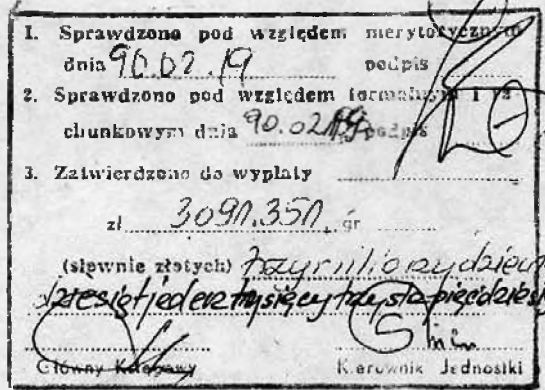 1. Sprawdzono pod względem merytorycznym
dnia 90.02.19 podpis
2. Sprawdzono pod względem formalnym i ra-
chunkowym dnia 90.02.19 podpis
3. Zatwierdzono do wypłaty
zł 3091.351, gr
(słownie złotych) trzy miliony dziew
dziesiąt jeden tysięcy trzysta pięćdziesi
Główny Księgowy Kierownik Jednostki